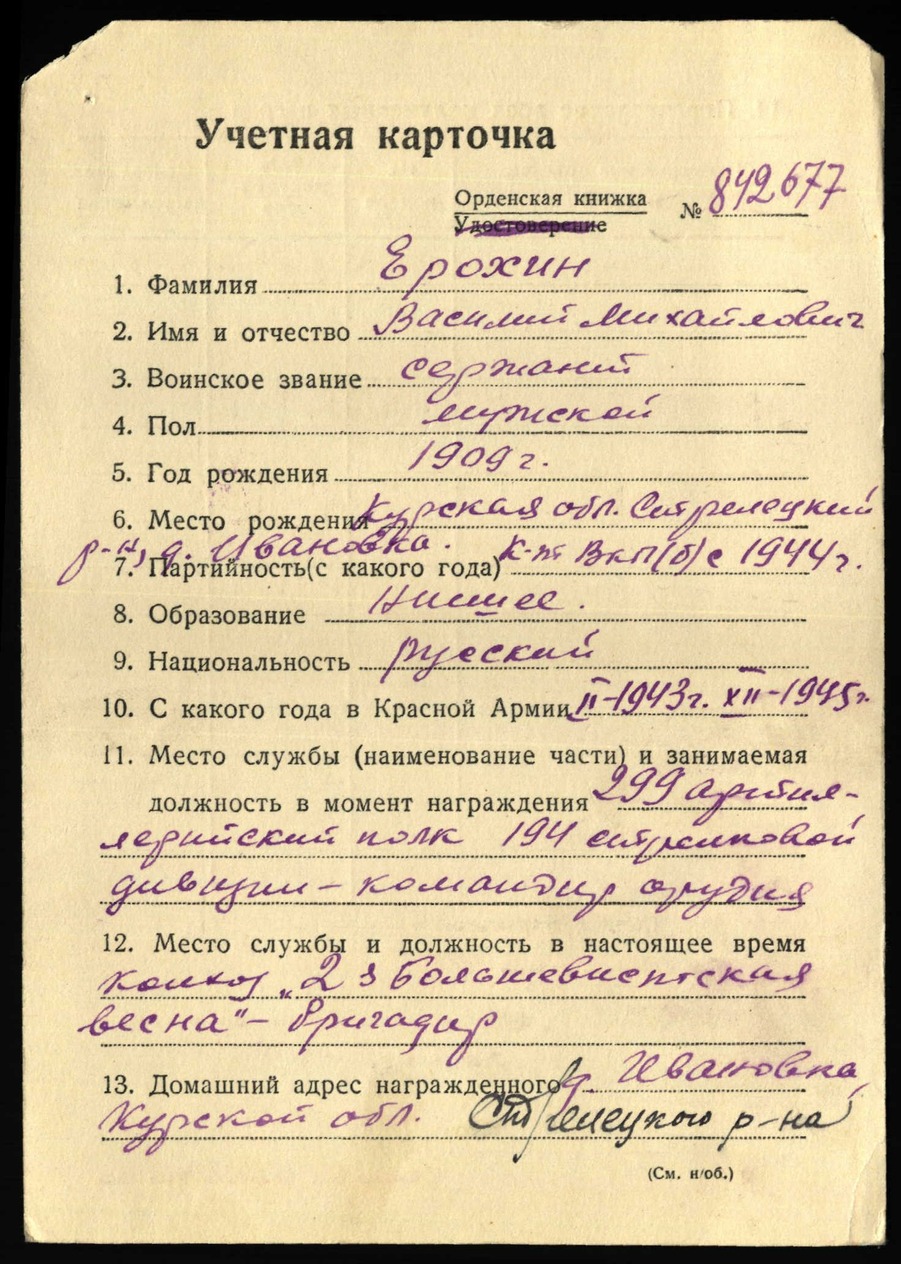 Учетная карточка
Орденская книжка
Удостоверение
№ 842677
1. Фамилия Ерохин
2. Имя и отчество Василий Михайлович
3. Воинское звание сержант
4. Пол мужской
5. Год рождения 1909 г.
6. Место рождения Курская обл. Стрелецкий
р-н, д. Ивановка.
7. Партийность (с какого года) к-т ВКП(б) с 1944 г.
8. Образование Низшее.
9. Национальность русский
10. С какого года в Красной Армии II-1943 г. XII-1945 г.
11. Место службы (наименование части) и занимаемая
должность в момент награждения 299 артил-
лерийский полк 194 стрелковой
дивизии - командир орудия
12. Место службы и должность в настоящее время
колхоз "23 Большевистская
весна" - бригадир
13. Домашний адрес награжденного д. Ивановка,
Курской обл. Стрелецкого р-на
(См. н/об.)